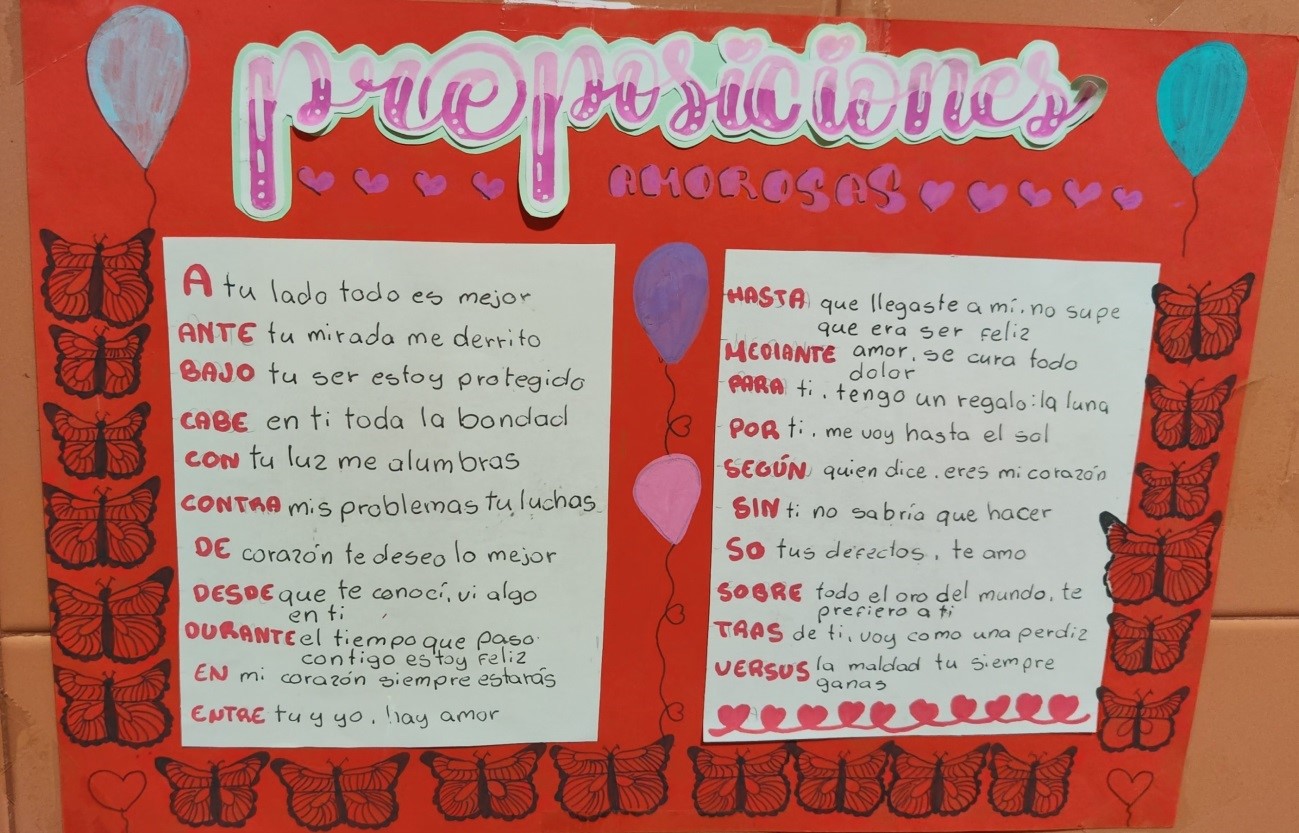 preposiciones
AMOROSAS
A tu lado todo es mejor
ANTE tu mirada me derrito
BAJO tu ser estoy protegido
CABE en ti toda la bondad
CON tu luz me alumbras
CONTRA mis problemas tu luchas
DE corazón te deseo lo mejor
DESDE que te conocí, vi algo
en ti
DURANTE el tiempo que paso
contigo estoy feliz
EN mi corazón siempre estarás
ENTRE tu y yo, hay amor
HASTA que llegaste a mí, no supe
que era ser feliz
MEDIANTE amor, se cura todo
dolor
PARA ti, tengo un regalo: la luna
POR ti, me voy hasta el sol
SEGÚN quien dice, eres mi corazón
SIN ti no sabría que hacer
SO tus defectos, te amo
SOBRE todo el oro del mundo, te
prefiero a ti
TRAS de ti, voy como una perdiz
VERSUS la maldad tu siempre
ganas